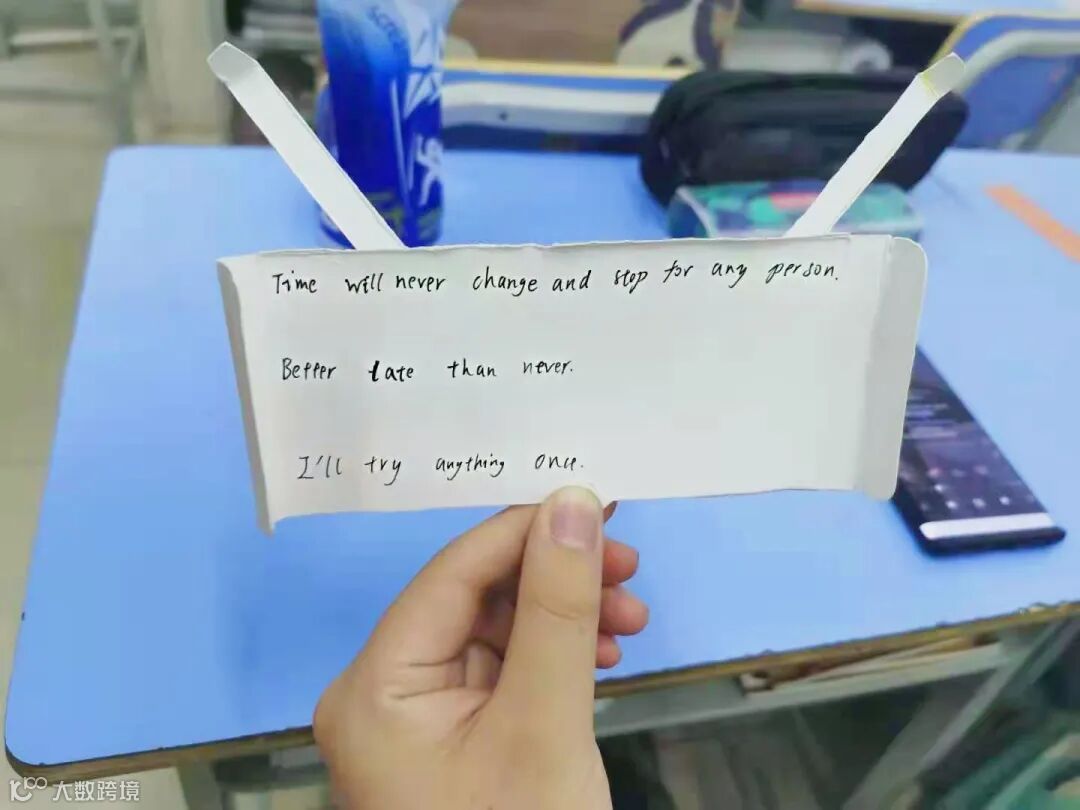 Time will never change and stop for any person.
Better late than never.
I'll try anything once.
大数跨境